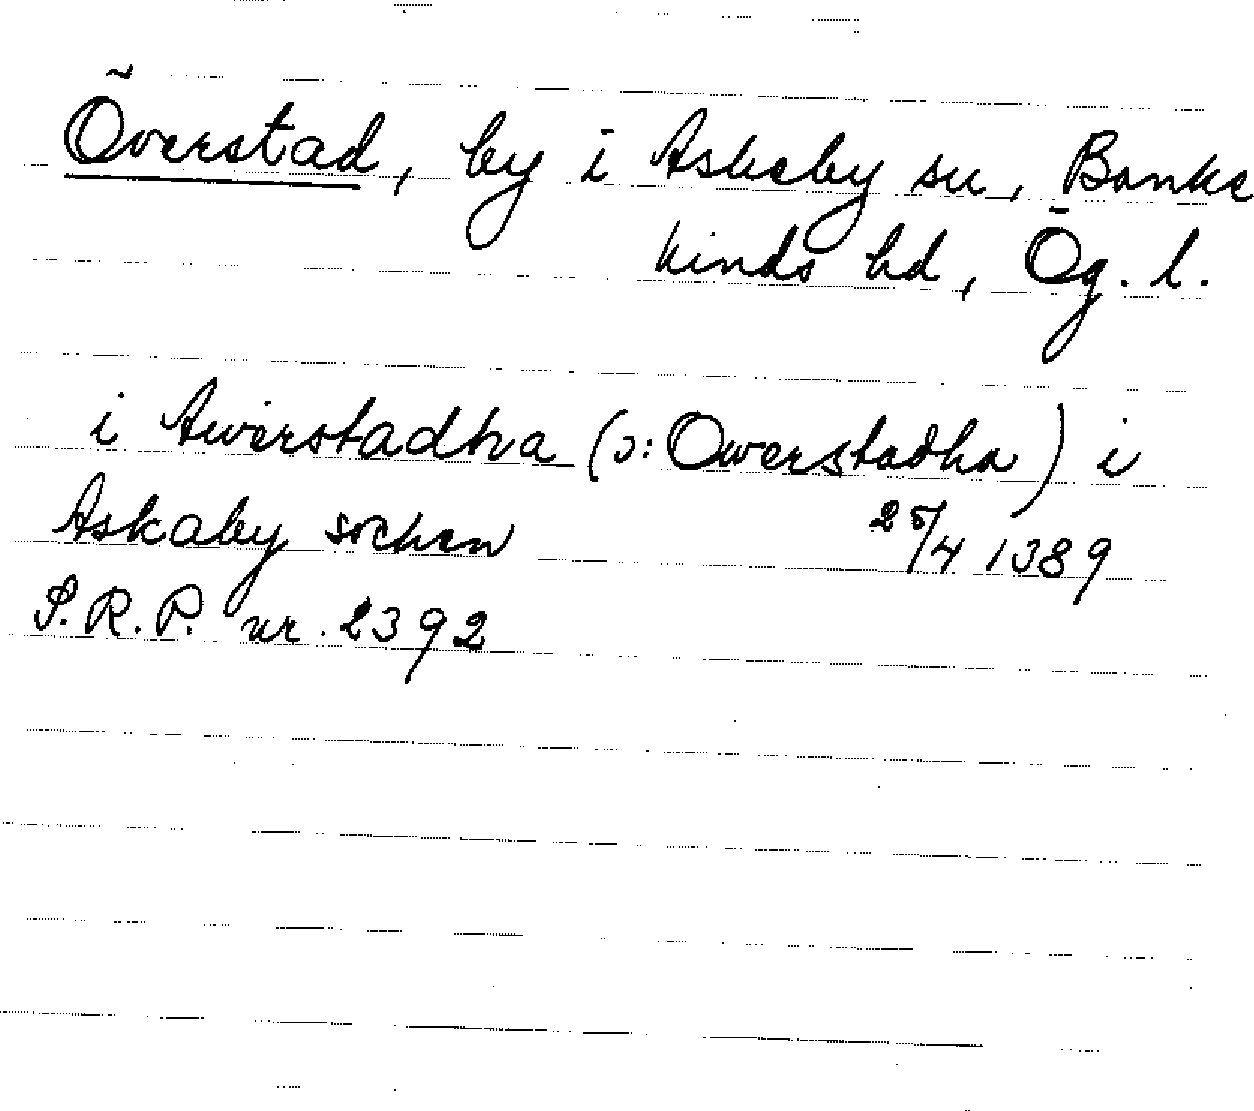 Överstad, by i Askeby sn, Banke
kinds hd, Ög. l.
i Awerstadha (ɔ: Owerstadha) i
Askaby sochen 25/4 1389
S.R.P. nr. 2392